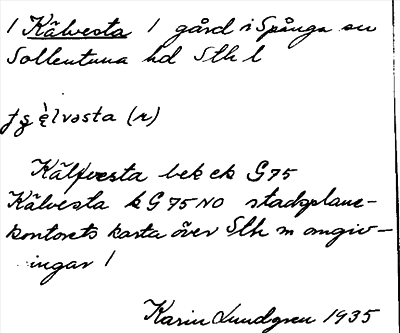 / Kälvesta / gård i Spånga sn
Sollentuna hd Sth l
(r)
Kälfvesta bek ek G75
Kälvesta k G75 NO stadsplane-
kontorets karta över Sth m omgiv-
ingar /
Karin Lundgren 1935